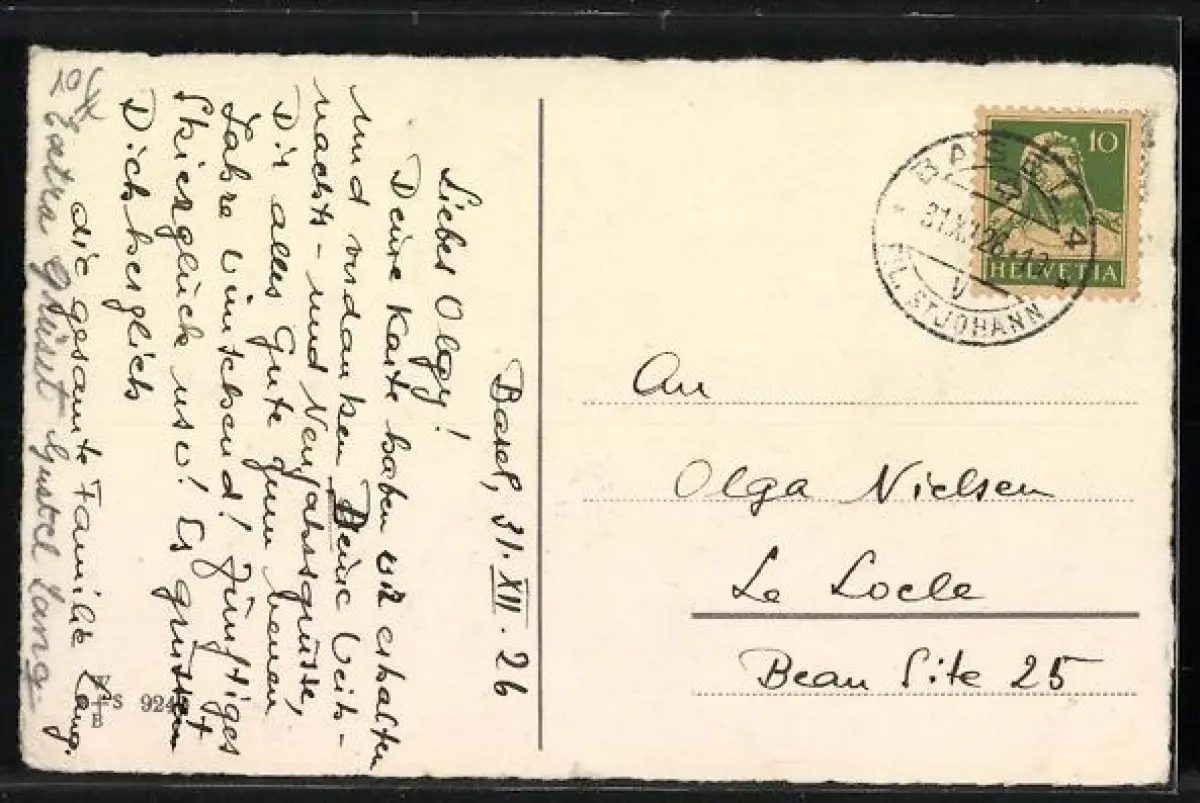 Basel, 31. XII. 26
Liebes Olgy!
Deine Karte haben wir erhalten
und verdanken Deine Weih-
nachts- und Neujahrsgrüsse,
Dir alles Gute zum neuen
Jahre wünschend! Zünftiges
Skierglück usw! Es grüsst
Dich herzlich
die gesamte Familie Lang.
Extra Grüsst Gustel Lang
W S
B
924
10
HELVETIA
BASEL 4
31.XII.26
V
FIL. ST.JOHANN
An
Olga Nielsen
Le Locle
Beau Site 25